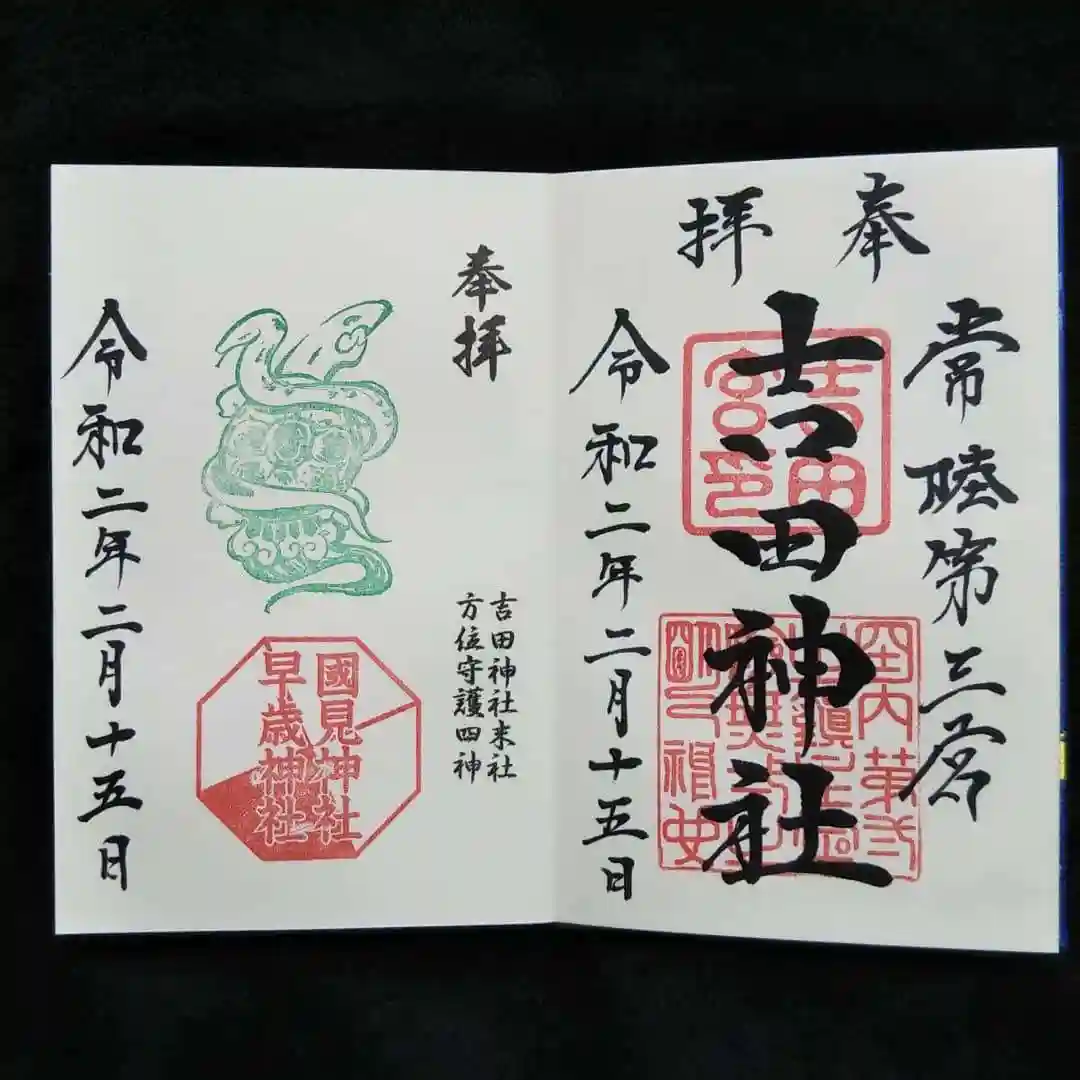 奉拝
常陸第三宮
吉田神社
令和二年二月十五日
吉田宮印
奉拝
吉田神社末社
方位守護四神
國見神社
早歳神社
令和二年二月十五日